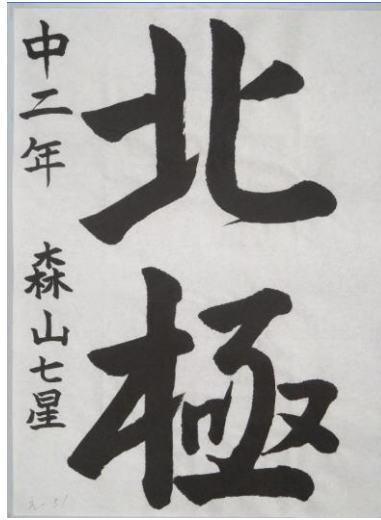 北極
中二年 森山七星